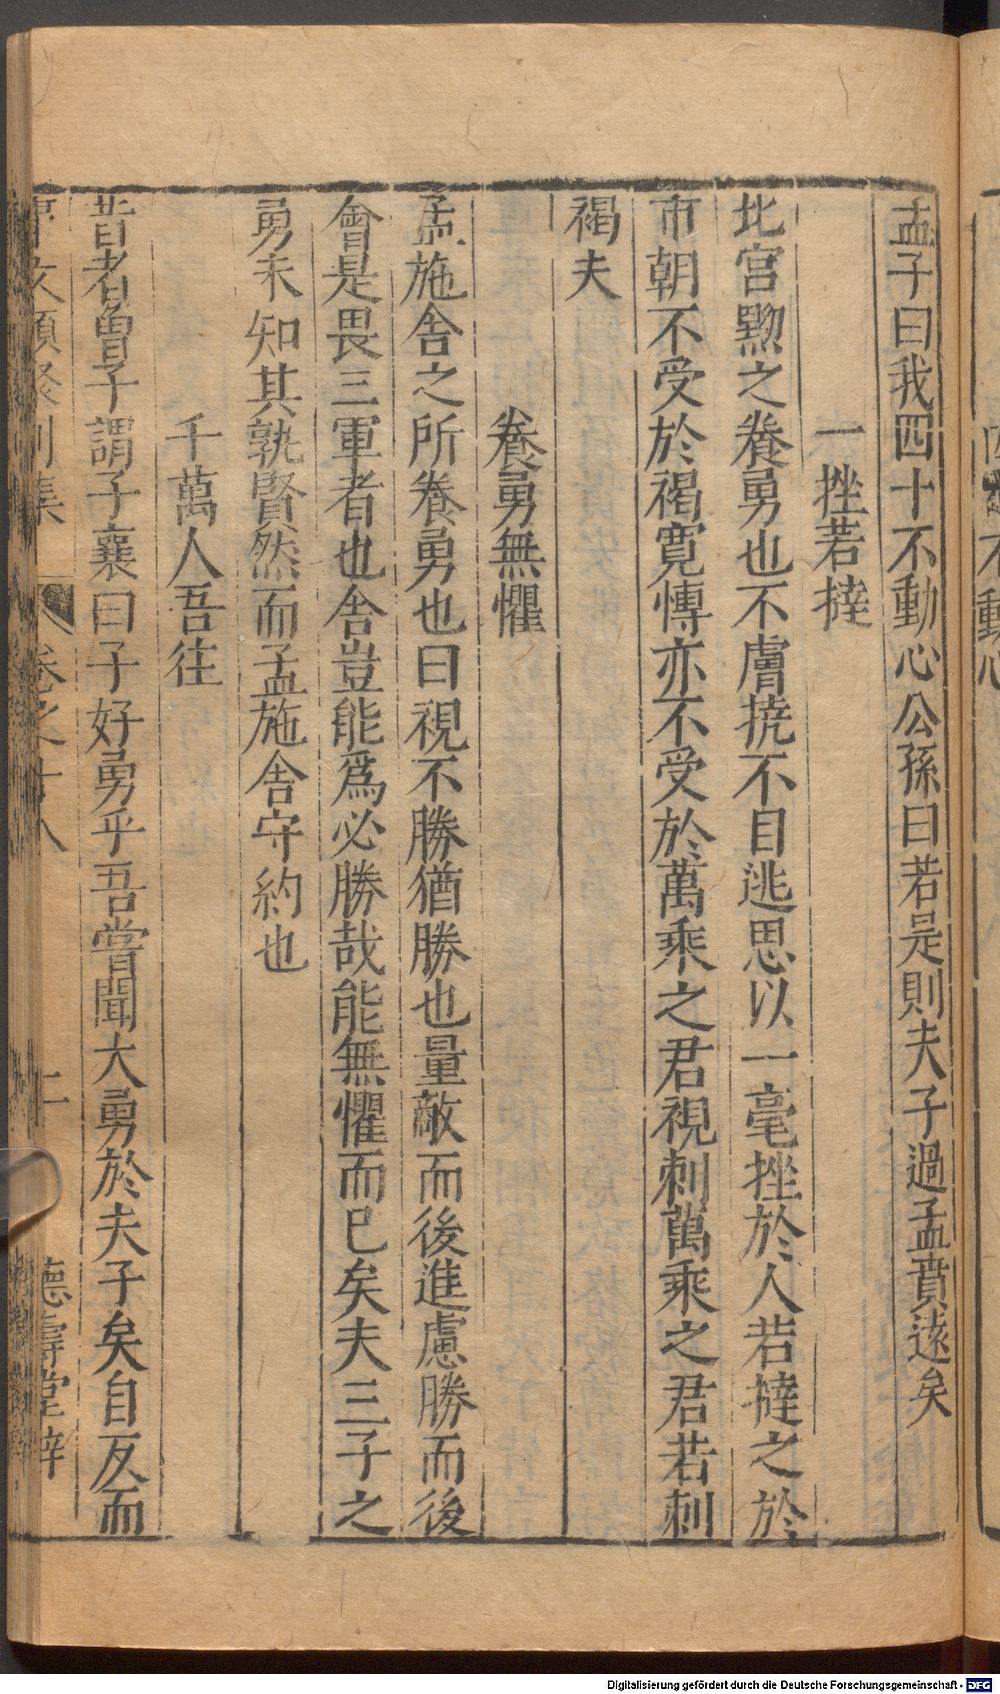 四十不動心
孟子曰我四十不動心公孫曰若是則夫子過孟賁遠矣
一挫若撻
北宮黝之養勇也不膚撓不目逃思以一毫挫於人若撻之於
市朝不受於褐寬博亦不受於萬乘之君視刺萬乘之君若刺
褐夫
養勇無懼
孟施舍之所養勇也曰視不勝猶勝也量敵而後進慮勝而後
會是畏三軍者也舍豈能爲必勝哉能無懼而已矣夫三子之
勇未知其孰賢然而孟施舍守約也
千萬人吾往
昔者曾子謂子襄曰子好勇乎吾嘗聞大勇於夫子矣自反而
事文類聚別集
卷之十八
二
德壽堂梓
Digitalisierung gefördert durch die Deutsche Forschungsgemeinschaft - DFG